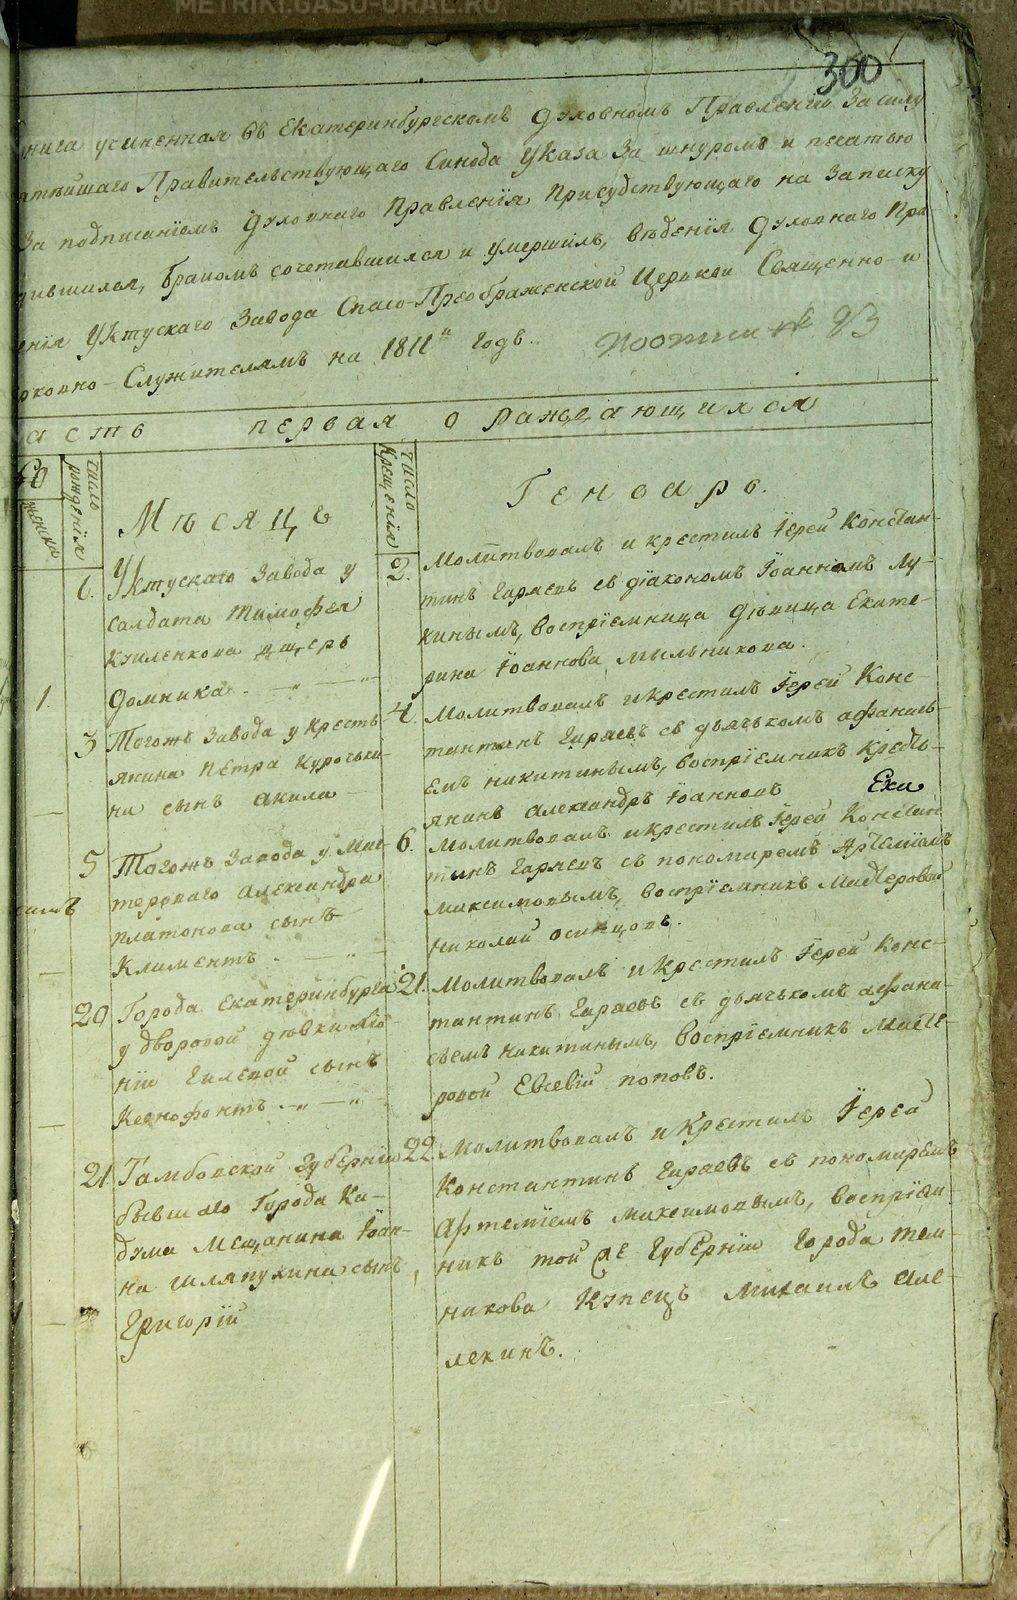 METRIKI.GASO-URAL.RU METRIKI.GASO-URAL.RU
300
книга учиненная въ Екатеринбургскомъ Духовномъ Правленіи За силу
Правительствующаго Синода Указа За шнуромъ и печатью
За подписаніемъ Духовнаго Правленія Присудствующаго на Записку
дившихся, бракомъ сочетавшихся и умершихъ, вѣденія Духовнаго Пра
ленія Уктускаго Завода Спасо-Преображенской Церькви Священно-и
рковно-Служителямъ на 1811й годъ.
асть первая о раждающихся
женска
число рожденія
Мѣсяцъ
число крещенія
Генварь.
6.
Уктускаго Завода у
солдата Тимофея
дщерь
1.
Домника. — „ — „
2.
Молитвовалъ и крестилъ Іерей Констан-
тинъ Гаряевъ съ діакономъ Іоанномъ Лу-
кинымъ, воспріемница дѣвица Екате-
рина Іоаннова Мыльникова.
3
Тогожъ Завода у кресть
янина Петра Курочьки-
на сынъ Акила —
4.
Молитвовалъ и крестилъ Іерей Конс-
тантинъ Гаряевъ съ дьячькомъ Афанась-
емъ Никитинымъ, воспріемникъ кресть-
янинъ Александръ Іоанновъ
5
Тогожъ Завода у Мас-
тероваго Александра
Платонова сынъ
Климентъ. — „ —
6.
Молитвовалъ и крестилъ Іерей Констан
тинъ Гаряевъ съ пономаремъ Артеміемъ
Максимовымъ, воспріемникъ Мастеровой
Николай Осинцовъ.
20
Города Екатеринбурга
у дворовой дѣвки
сынъ
Ксенофонтъ. — „ — „ —
21.
Молитвовалъ и крестилъ Іерей Конс-
тантинъ Гаряевъ съ дьячькомъ Афана-
сьемъ Никитинымъ, воспріемникъ Масте-
ровой Евсевій Поповъ.
21
Тамбовской Губерніи
бывшаго Города Ка-
дома Мещанина Іоан-
на Шляпухина сынъ
Григорій
22
Молитвовалъ и крестилъ Іерей
Константинъ Гаряевъ съ пономаремъ
Артеміемъ Максимовымъ, воспріем-
никъ той же Губерніи Города Тем-
никова Купецъ Михаилъ Але-
лекинъ.
METRIKI.GASO-URAL.RU METRIKI.GASO-URAL.RU